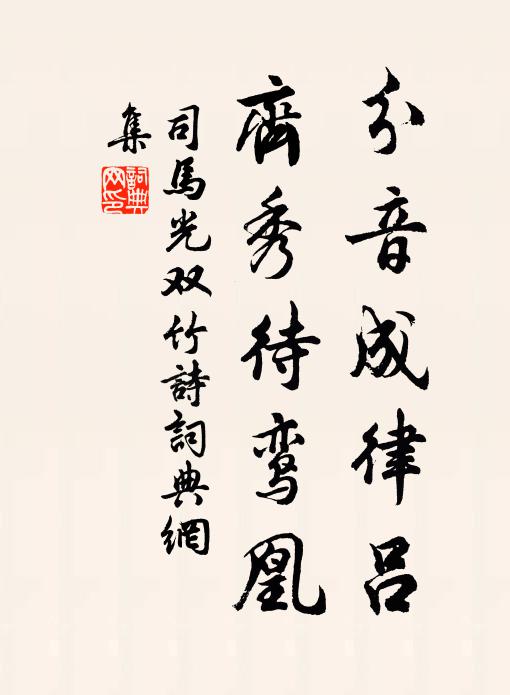 分音成律吕
齊秀待鸾凰
司馬光双竹詩詞典網
集
詞典
网印